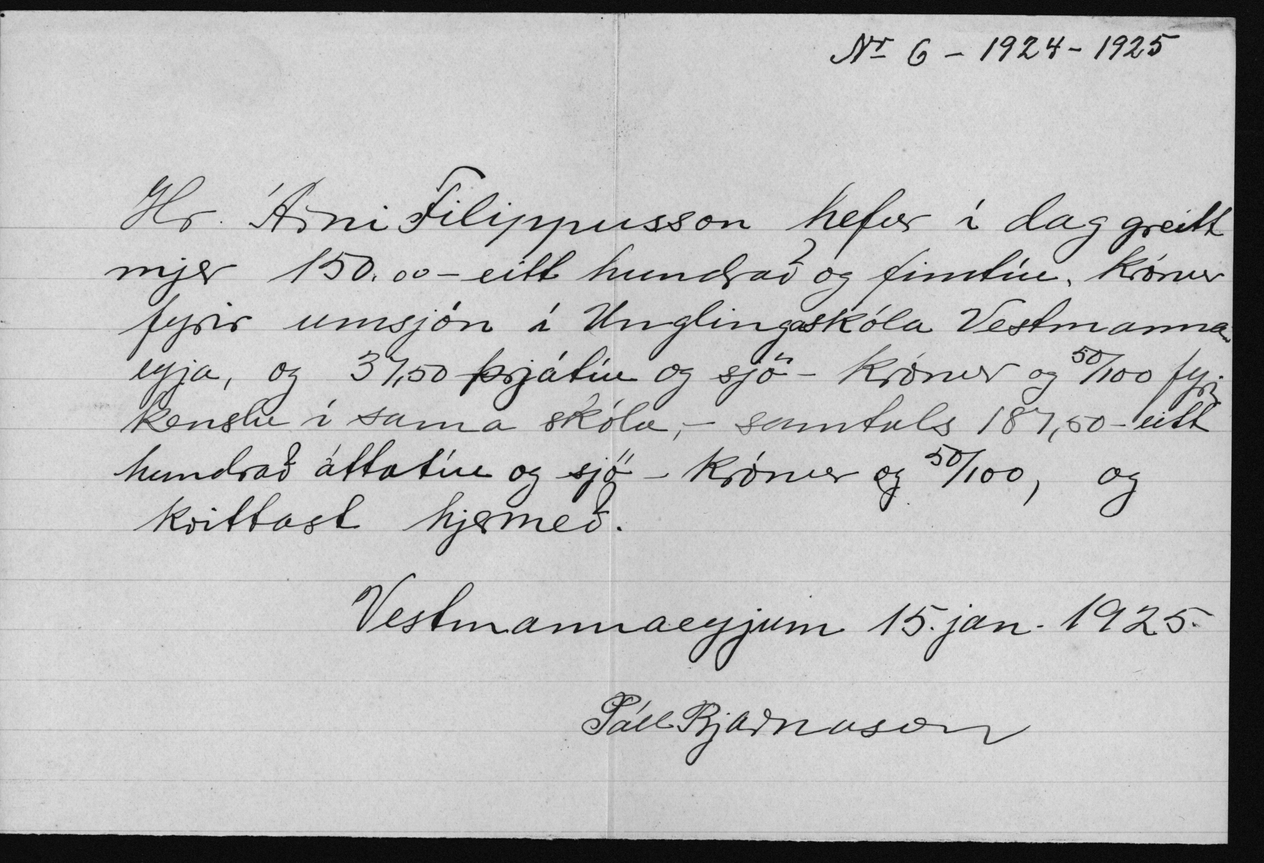 Nr 6 - 1924 - 1925
Hr. Árni Filippusson hefur í dag greitt
mjer 150.00 - eitt hundrað og fimtíu. krónur
fyrir umsjón í Unglingaskóla Vestmanna-
eyja, og 37,50 þrjátíu og sjö - krónur og 50/100 fyrir
kenslu í sama skóla, - samtals 187,50 - eitt
hundrað áttatíu og sjö - krónur og 50/100, og
kvittast hjermeð.
Vestmannaeyjum 15. jan. 1925.
Páll Bjarnason